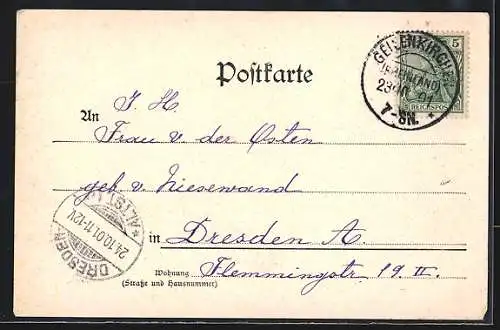 5
REICHSPOST
GEILENKIRCHEN
(RHEINLAND)
23.10.01
7-8N.
*
Postkarte
I. H.
An Frau v. der Osten
geb. v. Niesewand
in Dresden A.
Wohnung Flemmingstr. 19. II.
(Straße und Hausnummer)
*ALTST.
24.10.01.11-12V
DRESDEN